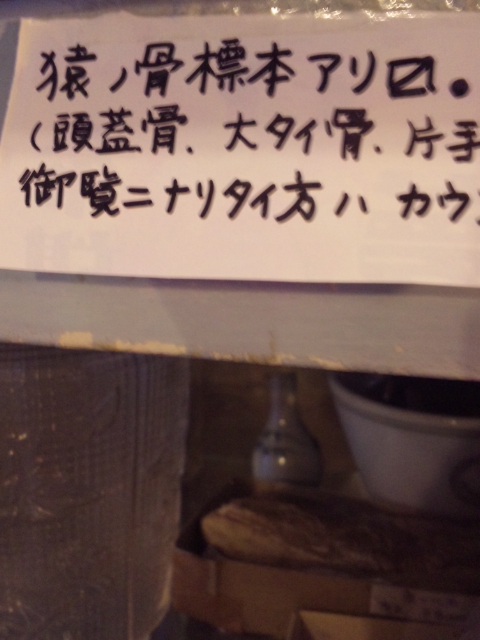 猿ノ骨標本アリ〼。
(頭蓋骨、大タイ骨、片手
御覧ニナリタイ方ハ カウ